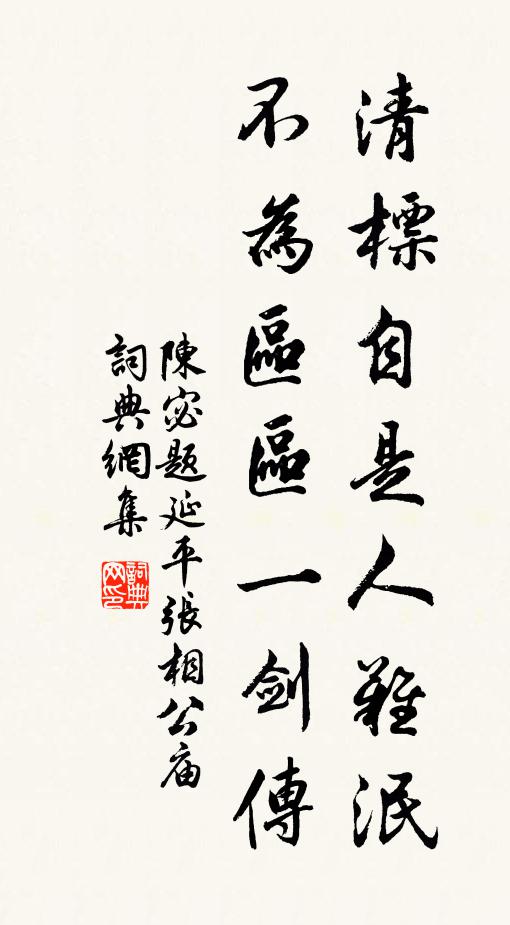 清標自是人難泯
不為區區一劍傳
陳宓題延平張相公庙
詞典網集
詞典网印